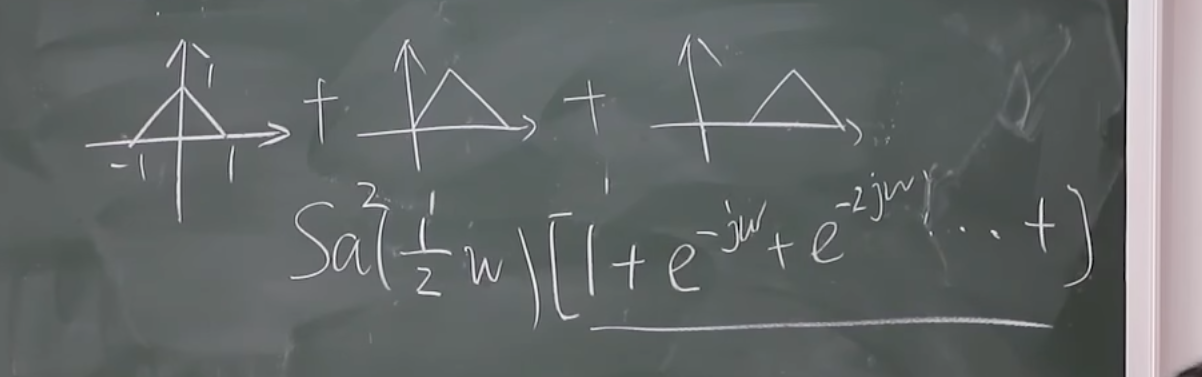 1
+ +
-1 1
Sa²(½w)[1+e^{-jw}+e^{-2jw}...+]